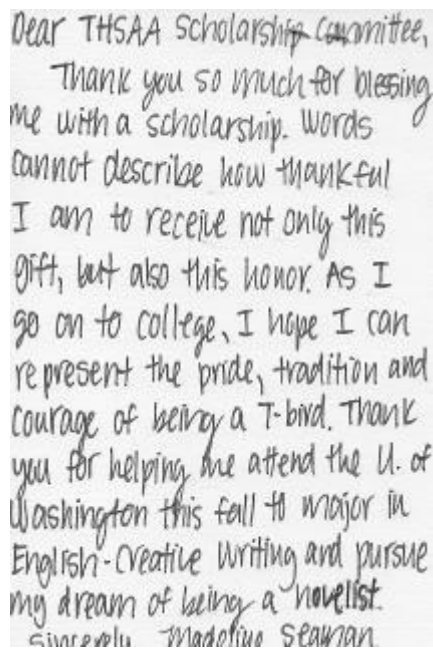 Dear THSAA Scholarship Committee,
Thank you so much for blessing
me with a scholarship. Words
cannot describe how thankful
I am to receive not only this
gift, but also this honor. As I
go on to college, I hope I can
represent the pride, tradition and
courage of being a T-bird. Thank
you for helping me attend the U. of
Washington this fall to major in
English-Creative Writing and pursue
my dream of being a novelist.
Sincerely, Madeline Seaman